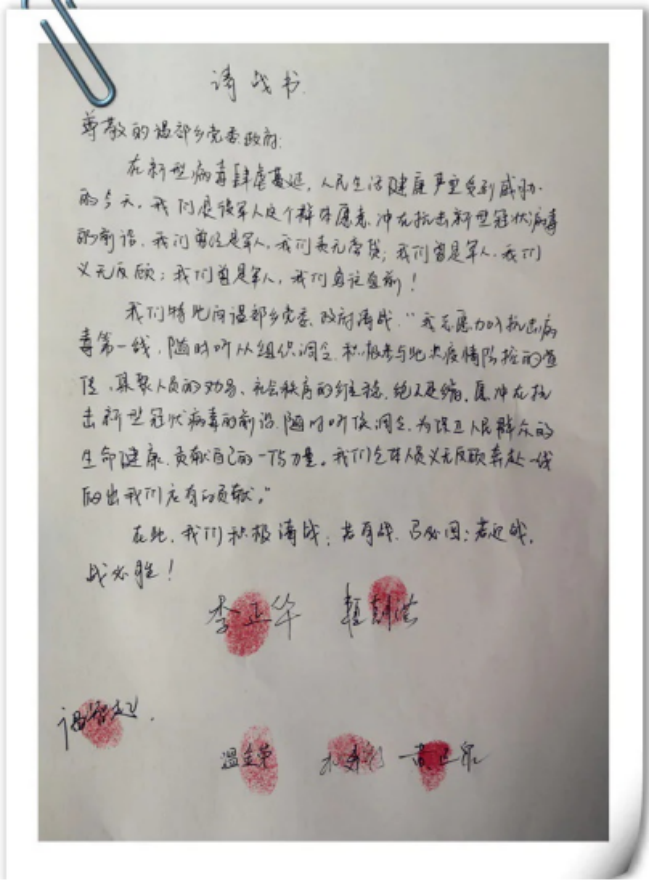 请战书
尊敬的温郊乡党委政府:
在新型病毒肆虐蔓延,人民生活健康严重受到威胁
的今天,我们退役军人这个群体愿意冲在抗击新型冠状病毒
的前沿,我们曾经是军人,我们责无旁贷;我们曾是军人,我们
义无反顾;我们曾是军人,我们勇往直前!
我们特此向温郊乡党委、政府请战:“我志愿加入抗击病
毒第一线,随时听从组织调令,积极参与此次疫情防控的宣
传、聚集人员的劝导、社会秩序的维稳,绝不退缩,愿冲在抗
击新型冠状病毒的前沿,随时听候调令,为保卫人民群众的
生命健康,贡献自己的一份力量。我们全体人员义无反顾奔赴一线
做出我们应有的贡献。”
在此,我们积极请战:若有战,召必回;若迎战,
战必胜!
李正华
温金荣